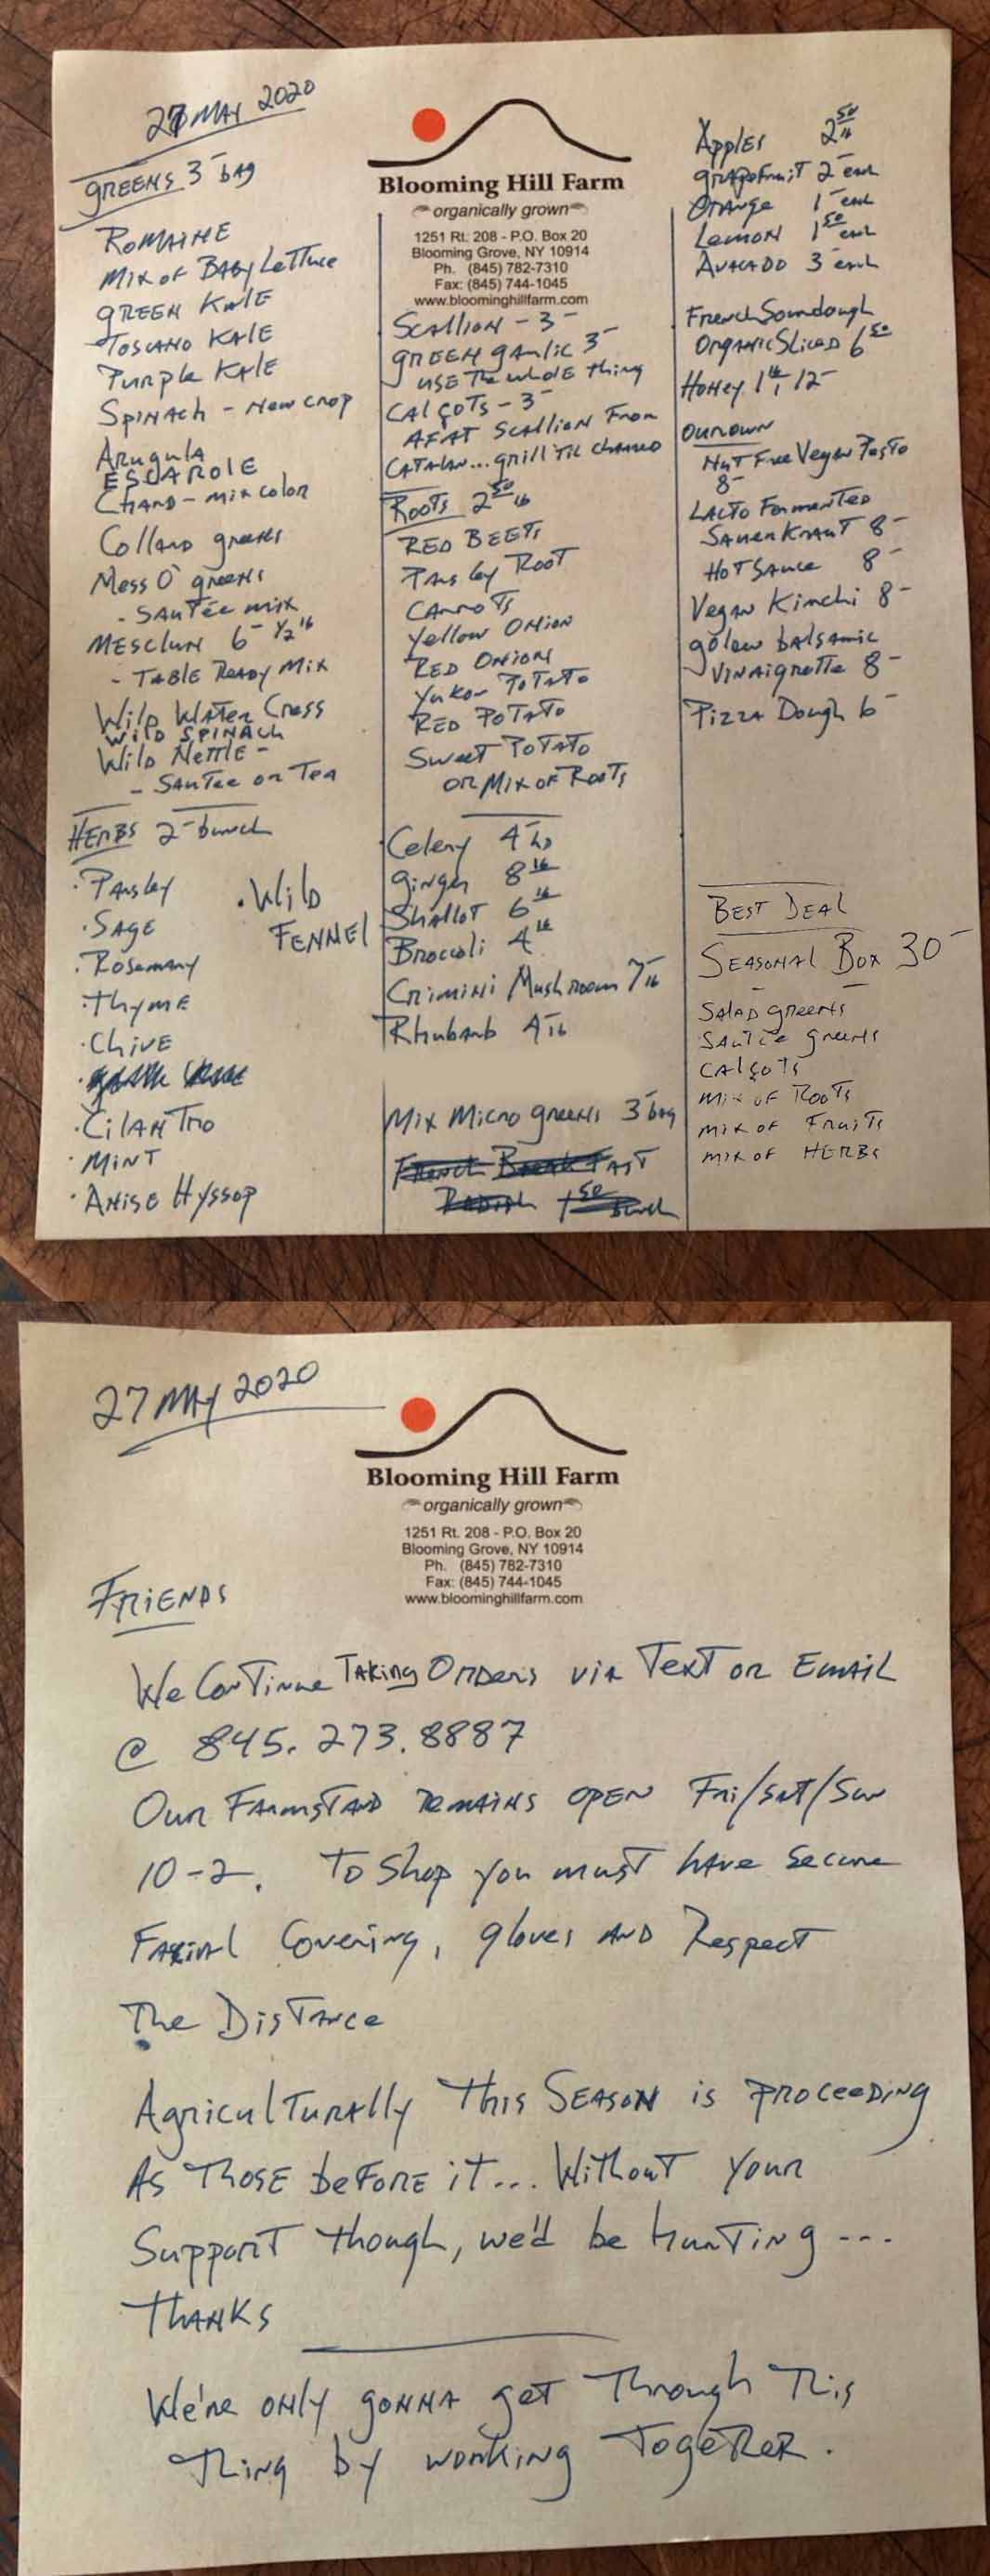 27 MAY 2020
GREENS 3- bag
ROMAINE
MIX OF BABY LETTUCE
GREEN KALE
TOSCANO KALE
PURPLE KALE
SPINACH - NEW CROP
ARUGULA
ESCAROLE
CHARD - MIX COLOR
Collard greens
Mess O' greens
- SAUTÉE MIX
MESCLUN 6- 1/2 lb
- TABLE READY MIX
Wild Water Cress
WILD SPINACH
Wild Nettle -
- SAUTEE or TEA
HERBS 2- bunch
· Parsley
· SAGE
· Rosemary
· Thyme
· CHIVE
· CILANTRO
· MINT
· ANISE HYSSOP
· Wild
FENNEL
Blooming Hill Farm
organically grown
1251 Rt. 208 - P.O. Box 20
Blooming Grove, NY 10914
Ph. (845) 782-7310
Fax: (845) 744-1045
www.bloominghillfarm.com
SCALLION - 3-
GREEN garlic 3-
USE The whole thing
CALÇOTS - 3-
A FAT SCALLION From
CATALAN... grill Til charred
ROOTS 2 50 lb
RED BEETS
Parsley ROOT
CARROTS
Yellow ONION
RED ONION
Yukon POTATO
RED POTATO
Sweet POTATO
OR MIX OF ROOTS
Celery 4- hd
Ginger 8 lb
Shallot 6 lb
Broccoli 4 lb
Crimini Mushroom 7- lb
Rhubarb 4- lb
Mix Micro greens 3- bag
French Breakfast
Radish 1 50 bunch
Apples 2 50 lb
grapefruit 2- each
Orange 1- each
Lemon 1 50 each
AVACADO 3- each
French Sourdough
Organic Sliced 6 50
Honey 1 lb, 12-
OUR OWN
Nut Free Vegan Pesto
8-
LACTO Formented
Sauerkraut 8-
HOT SAUCE 8-
Vegan Kimchi 8-
golden balsamic
VINAigrette 8-
Pizza Dough 6-
BEST DEAL
SEASONAL BOX 30-
SALAD greens
SAUTÉE greens
CALÇOTS
MIX OF ROOTS
MIX OF FRUITS
MIX OF HERBS
27 MAY 2020
Blooming Hill Farm
organically grown
1251 Rt. 208 - P.O. Box 20
Blooming Grove, NY 10914
Ph. (845) 782-7310
Fax: (845) 744-1045
www.bloominghillfarm.com
FRIENDS
We Continue Taking Orders via Text or Email
@ 845. 273. 8887
Our Farmstand remains open Fri/Sat/Sun
10-2. To shop you must have secure
Facial Covering, gloves and Respect
The Distance
Agriculturally this Season is proceeding
As Those before it... Without your
Support though, we'd be hurting ----
THANKS
We're only gonna get Through This
Thing by working Together.